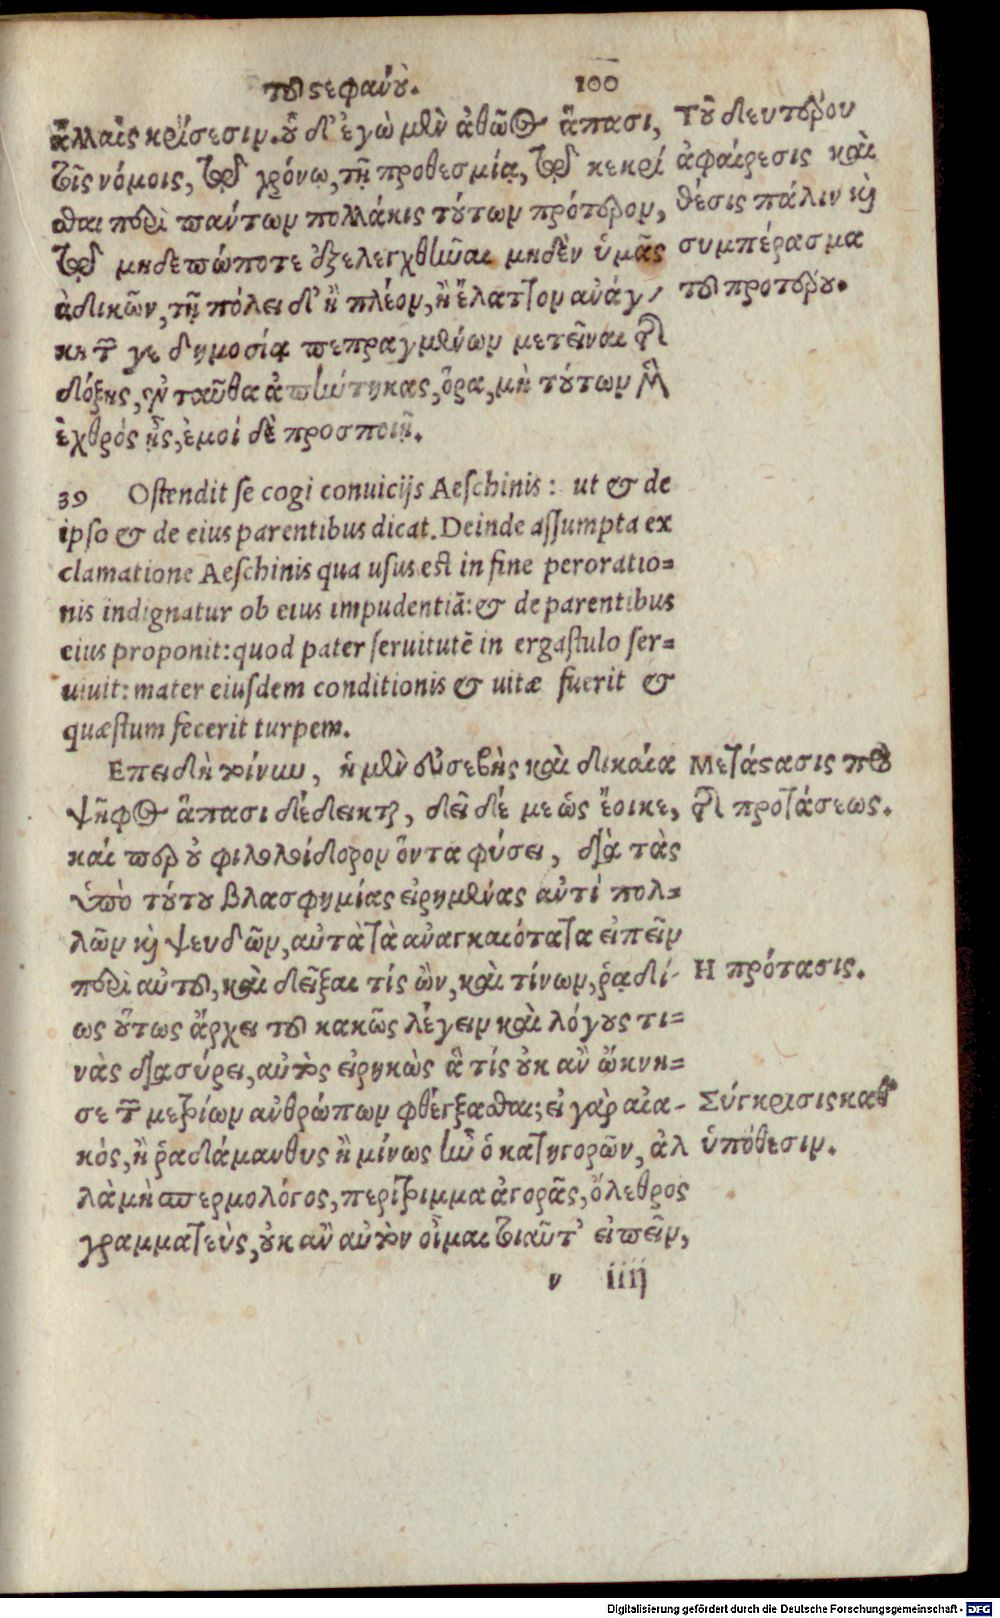 τοῦ στεφάνου. 100
ἄλλαις κρίσεσιν. οὗ δ' ἐγὼ μὲν ἀθῶος ἅπασι,
τοῖς νόμοις, τῷ χρόνῳ, τῇ προθεσμίᾳ, τῷ κεκρί
σθαι περὶ πάντων πολλάκις τούτων πρότερον,
τῷ μηδεπώποτε ἐξελεγχθῆναι μηδὲν ὑμᾶς
ἀδικῶν, τῇ πόλει δ' ἢ πλέον, ἢ ἔλαττον ἀνάγ-
κη τῶν γε δημοσίᾳ πεπραγμένων μετεῖναι τῆς
δόξης, ἐνταῦθα ἀπήντηκας, ὅρα, μὴ τούτων μὲν
ἐχθρός ᾖς, ἐμοί δὲ προσποιῇ.
Τοῦ δευτέρου
ἀφαίρεσις καὶ
θέσις πάλιν καὶ
συμπέρασμα
τοῦ προτέρου.
39 Ostendit se cogi conuicijs Aeschinis: ut & de
ipso & de eius parentibus dicat. Deinde assumpta ex
clamatione Aeschinis qua usus est in fine peroratio=
nis indignatur ob eius impudentiā: & de parentibus
eius proponit: quod pater seruitutē in ergastulo ser=
uiuit: mater eiusdem conditionis & uitæ fuerit &
quæstum fecerit turpem.
Επειδὴ τοίνυν, ἡ μὲν εὐσεβὴς καὶ δικαία
ψῆφος ἅπασι δέδεικται, δεῖ δέ με ὡς ἔοικε,
καίπερ οὐ φιλολοίδορον ὄντα φύσει, διὰ τὰς
ὑπὸ τούτου βλασφημίας εἰρημένας αὐτὶ πολ=
λῶν καὶ ψευδῶν, αὐτὰ τὰ ἀναγκαιότατα εἰπεῖν
περὶ αὐτοῦ, καὶ δεῖξαι τίς ὢν, καὶ τίνων, ῥᾳδί-
ως οὕτως ἄρχει τοῦ κακῶς λέγειν καὶ λόγους τι=
νὰς διασύρει, αὐτὸς εἰρηκὼς ἃ τίς οὐκ ἂν ὤκνη=
σε τῶν μετρίων ἀνθρώπων φθέγξασθαι; εἰ γὰρ αἰα-
κός, ἢ ῥαδάμανθυς ἢ μίνως ἦν ὁ κατηγορῶν, ἀλ
λὰ μὴ σπερμολόγος, περίτριμμα ἀγορᾶς, ὄλεθρος
γραμματεὺς, οὐκ ἂν αὐτὸν οἶμαι τοιαῦτ' εἰπεῖν,
Μετάστασις πρὸ
τῆς προτάσεως.
Η πρότασις.
Σύγκρισις καθ'
ὑπόθεσιν.
ν iiij
Digitalisierung gefördert durch die Deutsche Forschungsgemeinschaft - DFG